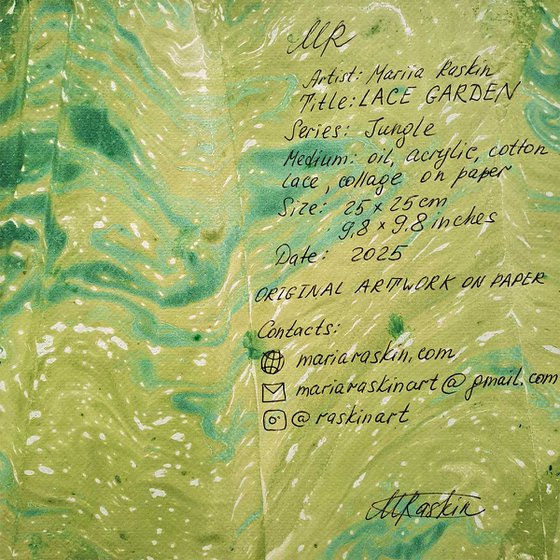 MR
Artist: Mariia Raskin
Title: LACE GARDEN
Series: Jungle
Medium: oil, acrylic, cotton
lace, collage on paper
Size: 25 x 25 cm
9,8 x 9,8 inches
Date: 2025
ORIGINAL ARTWORK ON PAPER
Contacts:
mariaraskin.com
mariaraskinart@gmail.com
@raskinart
MRaskin